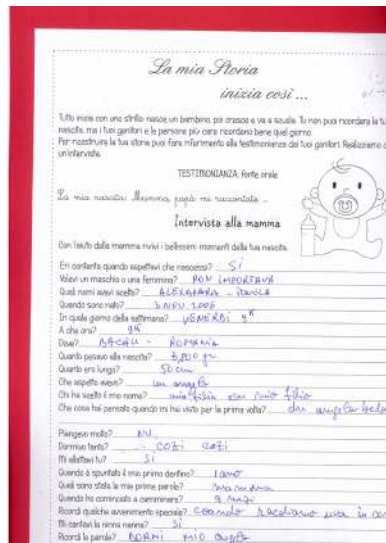 La mia Storia
inizia così ...
Tutto inizia con uno strillo: nasce un bambino, poi cresce e va a scuola. Tu non puoi ricordare la tua
nascita, ma i tuoi genitori e le persone più care ricordano bene quel giorno.
Per ricostruire la tua storia puoi fare riferimento alla testimonianza dei tuoi genitori. Realizziamo
un'intervista.
TESTIMONIANZA: fonte orale
La mia nascita: Mamma, papà mi raccontate ...
Intervista alla mamma
Con l'aiuto della mamma rivivi i bellissimi momenti della tua nascita.
Eri contenta quando aspettavi che nascessi? SI
Volevi un maschio o una femmina? NON IMPORTAVA
Quali nomi avevi scelto? ALEXANDRA -
Quando sono nato? 3 NOV. 2006
In quale giorno della settimana? VENERDI
A che ora?
Dove? BACAU - ROMANIA
Quanto pesavo alla nascita? 3,800 gr
Quanto ero lungo? 50 cm
Che aspetto avevo? un angelo
Chi ha scelto il mio nome? mia filia mio filio
Che cosa hai pensato quando mi hai visto per la prima volta? angelo
Piangevo molto? NU
Dormivo tanto? COZI COZI
Mi allattavi tu? SI
Quando è spuntato il mio primo dentino? 1 ano
Quali sono state le mie prime parole? mamma
Quando ho cominciato a camminare? 9 munzi
Ricordi qualche avvenimento speciale? Coando
Mi cantavi la ninna nanna? SI
Ricordi le parole? DORMI MIO angelo